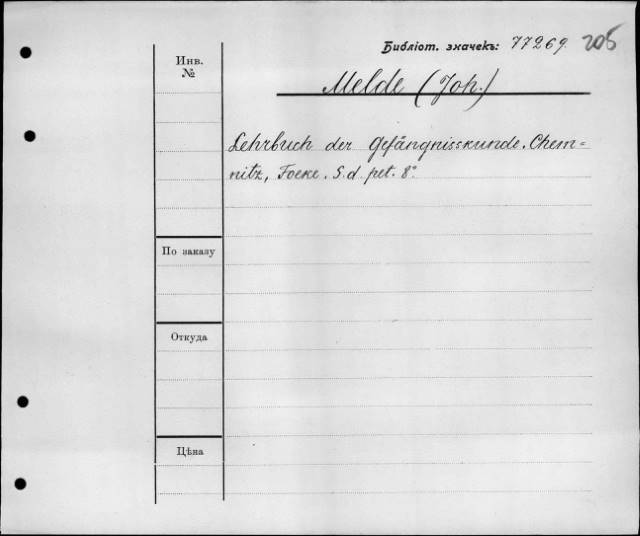 Библіот. значекъ: 77269. 205
Инв. №
Melde (Joh.)
Lehrbuch der Gefängnisskunde. Chem-
nitz, Focke. S. d. pet. 8°.
По заказу
Откуда
Цѣна